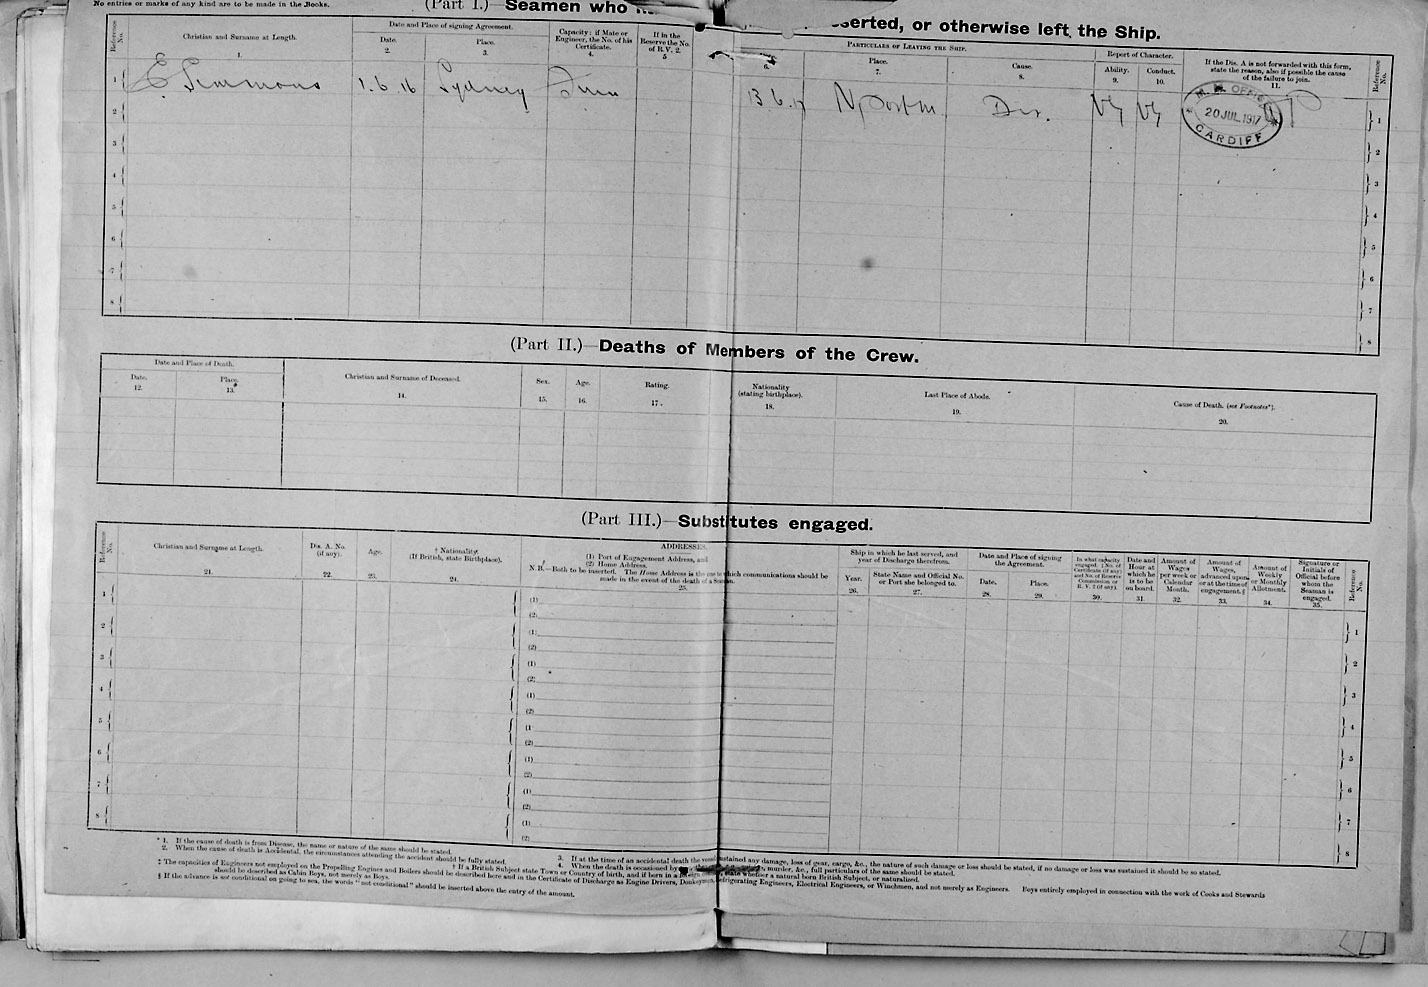 No entries or marks of any kind are to be made in the Books.
(Part I.)—Seamen who
serted, or otherwise left the Ship.
Reference No.
Christian and Surname at Length.
1.
Date and Place of signing Agreement.
Date.
2.
Place.
3.
Capacity: if Mate or
Engineer, the No. of his
Certificate.
4.
If in the
Reserve the No.
of R.V. 2.
5
6.
Particulars of Leaving the Ship.
Place.
7.
Cause.
8.
Report of Character.
Ability.
9.
Conduct.
10.
If the Dis. A is not forwarded with this form,
state the reason, also if possible the cause
of the failure to join.
11.
Reference No.
1 E Simmons 1.6.16 Sydney Fmn 13.6.17 N Port M. Dis. VG VG 1
M. M. OFFICE
20 JUL. 1917
CARDIFF
2 2
3 3
4 4
5 5
6 6
7 7
8 8
(Part II.)—Deaths of Members of the Crew.
Date and Place of Death.
Date.
12.
Place.
13.
Christian and Surname of Deceased.
14.
Sex.
15.
Age.
16.
Rating.
17.
Nationality
(stating birthplace).
18.
Last Place of Abode.
19.
Cause of Death. (see Footnotes*).
20.
(Part III.)—Substitutes engaged.
Reference No.
Christian and Surname at Length.
21.
Dis. A. No.
(if any).
22.
Age.
23.
† Nationality.
(If British, state Birthplace).
24.
ADDRESSES.
(1) Port of Engagement Address, and
(2) Home Address.
N.B.—Both to be inserted. The Home Address is the one to which communications should be
made in the event of the death of a Seaman.
25.
Ship in which he last served, and
year of Discharge therefrom.
Year.
26.
State Name and Official No.
or Port she belonged to.
27.
Date and Place of signing
the Agreement.
Date.
28.
Place.
29.
In what capacity
engaged. ‡ No. of
Certificate (if any)
and No. of Reserve
Commission or
R. V. 2 (if any).
30.
Date and
Hour at
which he
is to be
on board.
31.
Amount of
Wages
per week or
Calendar
Month.
32.
Amount of
Wages,
advanced upon
or at the time of
engagement.§
33.
Amount of
Weekly
or Monthly
Allotment.
34.
Signature or
Initials of
Official before
whom the
Seaman is
engaged.
35.
Reference No.
1 (1) 1
(2)
2 (1) 2
(2)
3 (1) 3
(2)
4 (1) 4
(2)
5 (1 5
(2)
6 (1) 6
(2)
7 (1) 7
(2)
8 (1) 8
(2)
* 1. If the cause of death is from Disease, the name or nature of the same should be stated.
2. When the cause of death is Accidental, the circumstances attending the accident should be fully stated.
3. If at the time of an accidental death the vessel sustained any damage, loss of gear, cargo, &c., the nature of such damage or loss should be stated, if no damage or loss was sustained it should be so stated.
4. When the death is occasioned by murder, &c., full particulars of the same should be stated.
† If a British Subject state Town or Country of birth, and if born in a foreign state whether a natural born British Subject, or naturalized.
‡ The capacities of Engineers not employed on the Propelling Engines and Boilers should be described here and in the Certificate of Discharge as Engine Drivers, Donkeymen, Refrigerating Engineers, Electrical Engineers, or Winchmen, and not merely as Engineers. Boys entirely employed in connection with the work of Cooks and Stewards
should be described as Cabin Boys, not merely as Boys.
§ If the advance is not conditional on going to sea, the words "not conditional" should be inserted above the entry of the amount.